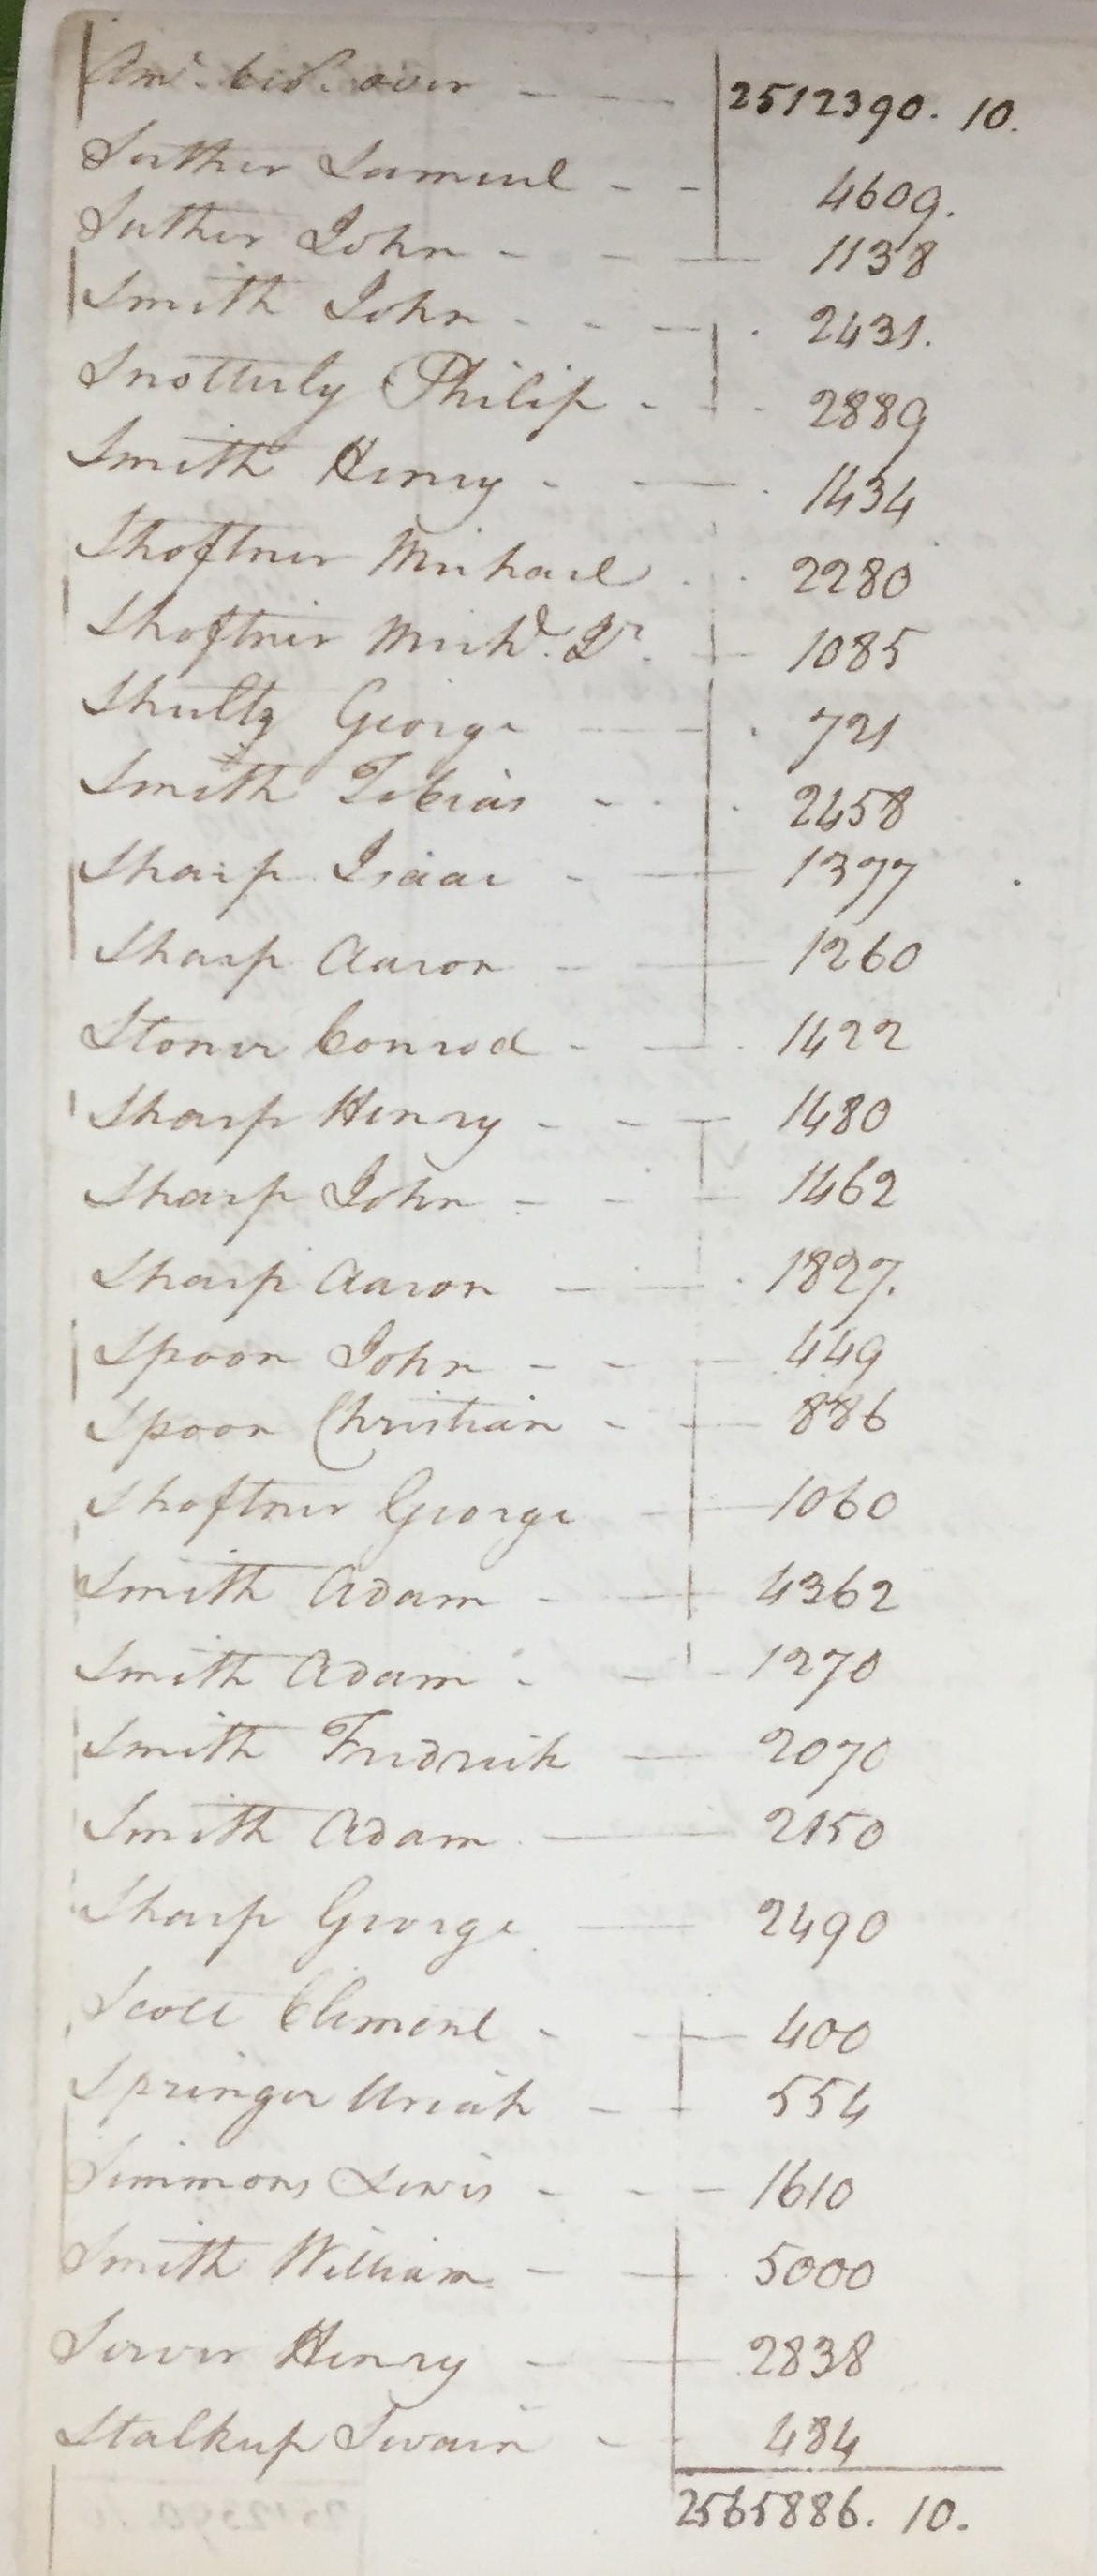 Amt. bro't. over 2512390. 10.
Suther Samuel 4609.
Suther John 1138
Smith John 2431.
Snotterly Philip 2889
Smith Henry 1434
Shoftner Michael 2280
Shoftner Michl. Jr. 1085
Shultz George 721
Smith Tobias 2458
Sharp Isaac 1377
Sharp Aaron 1260
Stoner Conrod 1422
Sharp Henry 1480
Sharp John 1462
Sharp Aaron 1827.
Spoon John 449
Spoon Christian 886
Shoftner George 1060
Smith Adam 4362
Smith Adam 1270
Smith Fredrick 2070
Smith Adam 2150
Sharp George 2490
Scott Clement 400
Springer Uriah 554
Simmons Lewis 1610
Smith William 5000
Server Henry 2838
Stalkup Swain 484
2565886. 10.